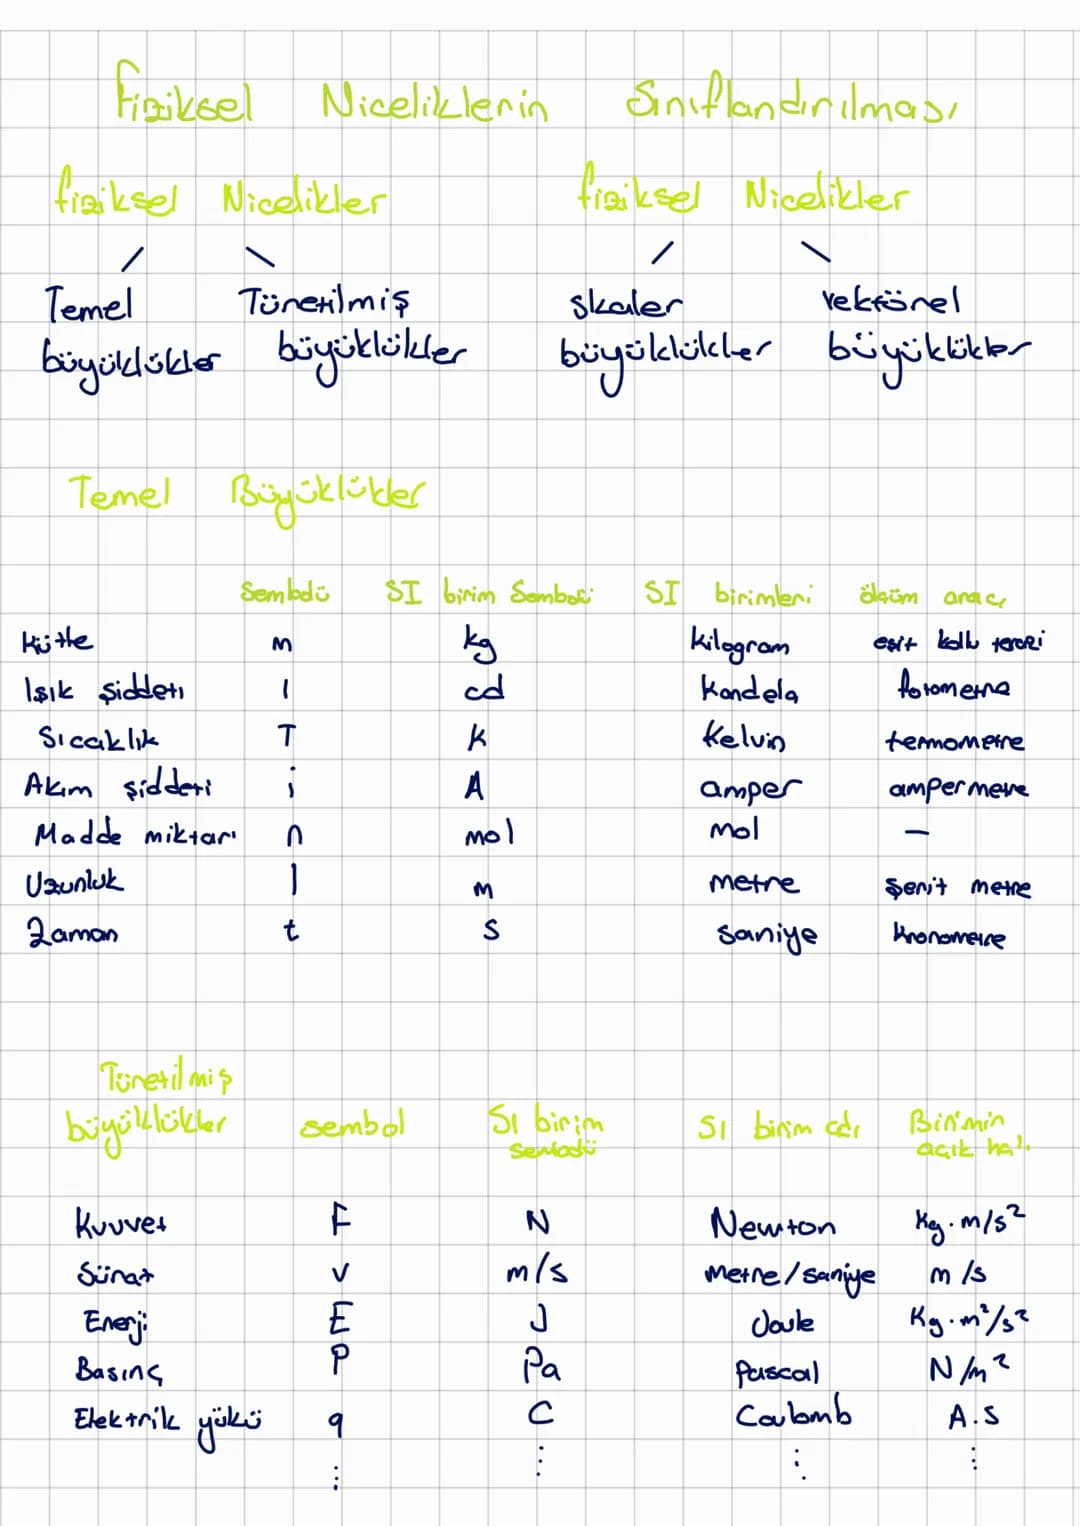 Fiziksel Niceliklerin Sınıflandırılması
fiziksel Nicelikler fiziksel Nicelikler
Temel Türetilmiş skaler vektörel
büyüklükler büyüklükler büyüklükler büyüklükler
Temel Büyüklükler
Sembolü SI birim Sembolü SI birimleri ölçüm aracı
Kütle m kg kilogram eşit kollu terazi
Işık şiddeti I cd Kandela fotometre
Sıcaklık T K Kelvin termometre
Akım şiddeti i A amper ampermetre
Madde miktarı n mol mol –
Uzunluk l m metre şerit metre
Zaman t s saniye kronometre
Türetilmiş
büyüklükler sembol SI birim sembolü SI birim adı Birimin açık hali
Kuvvet F N Newton Kg.m/s²
Sürat v m/s Metre/saniye m/s
Enerji E J Joule Kg.m²/s²
Basınç P Pa Pascal N/m²
Elektrik yükü q C Coulomb A.s
... ... ... ...